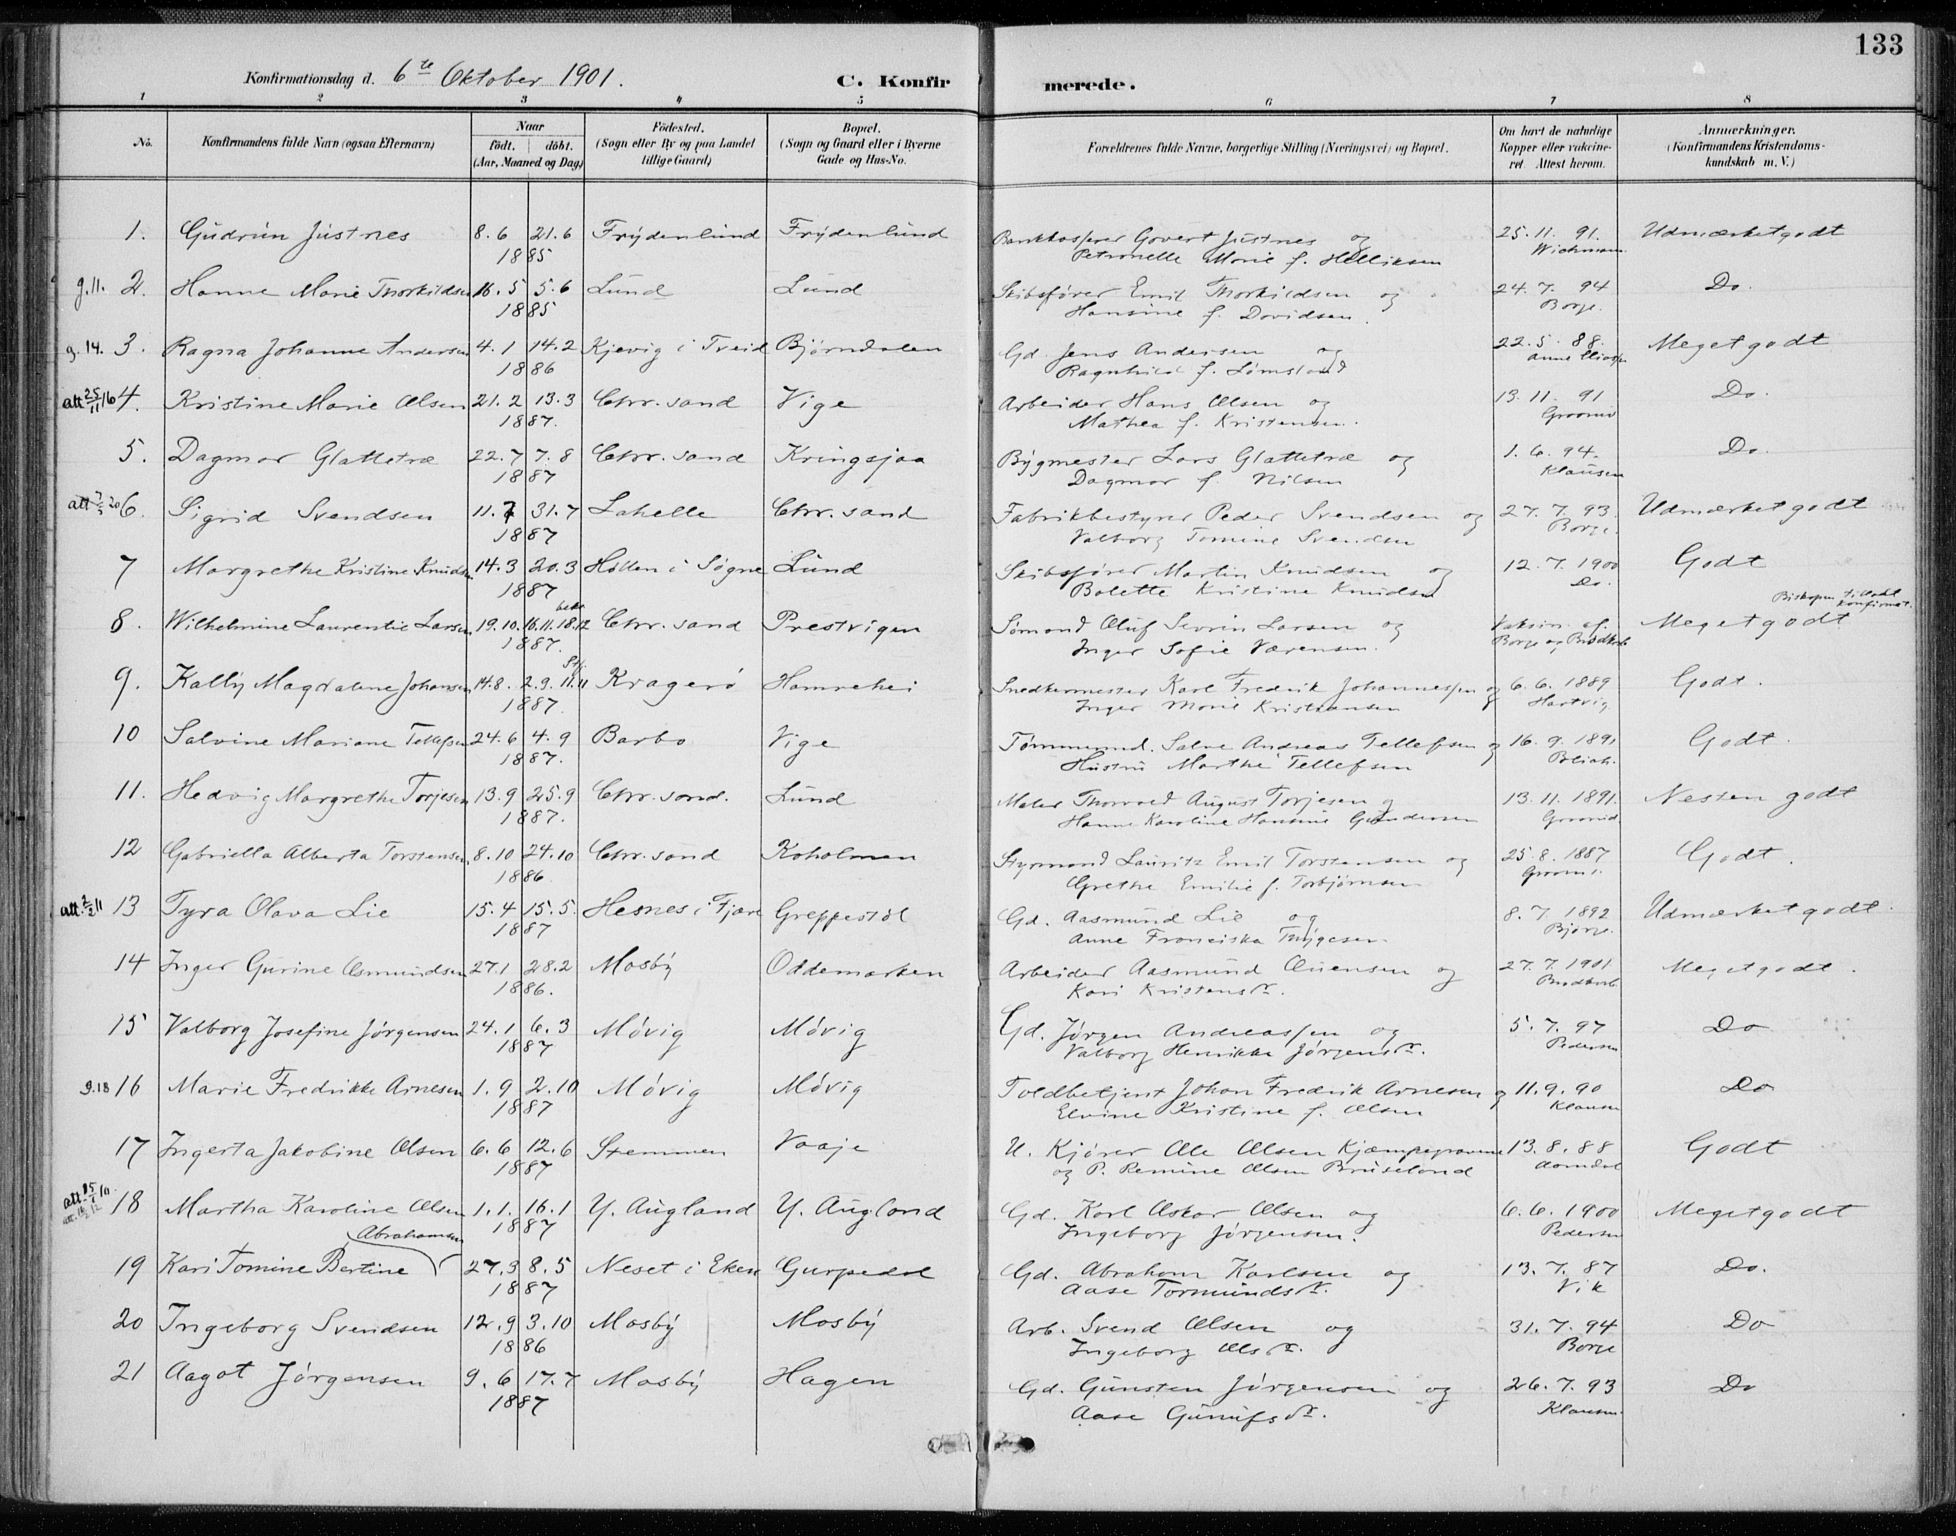 133
Konfirmationsdag d. 6te Oktober 1901. C. Konfirmerede.
1 2 3 4 5 6 7 8
No. Konfirmandens fulde Navn (ogsaa Efternavn) Naar födt. döbt. (Aar, Maaned og Dag) Födested. (Sogn eller By og paa Landet tillige Gaard) Bopæl. (Sogn og Gaard eller i Byerne Gade og Hus-No. Forældrenes fulde Navne, borgerlige Stilling (Næringsvei) og Bopæl. Om havt de naturlige Kopper eller vakcineret. Attest herom. Anmærkninger. (Konfirmandens Kristendomskundskab m. V.)
1. Gudrun Justnes 8.6 21.6 Frydenlund Frydenlund Bankkasserer Govert Justnes og 25.11.91. Udmærketgodt
1885 Petronelle Marie f. Helliksen Wichmann
g.11. 2. Hanne Marie Thorkildsen 16.5 5.6 Lund Lund Skibsfører Emil Thorkildsen og 24.7.94 Do.
1885 Hansine f. Davidsen. Borge.
g.14. 3. Ragna Johanne Andersen 4.1 14.2 Kjevig i Tveid Bjørndalen Gd. Jens Andersen og 22.5.88. Megetgodt
1886 Ragnhild f. Lømsland Anne
att 25/11 16 4. Kristine Marie Olsen 21.2 13.3 Chr.sand Vige Arbeider Hans Olsen og 13.11.91 Do.
1887. Mathea f. Kristensen.
5. Dagmar Glattetræ 22.7 7.8 Chr.sand Kringsjaa Bygmester Lars Glattetræ og 1.6.94. Do.
1887 Dagmar f. Nilsen Klausen
att 20 6. Sigrid Svendsen 11.7 31.7 Lahelle Chr.sand Fabrikbestyrer Peder Svendsen og 27.7.93. Udmærketgodt
1887 Valborg Tomine Svendsen Borge.
7 Margrethe Kristine Knudsen 14.3 20.3 Høllen i Søgne Lund Skibsfører Martin Knudsen og 12.7.1900 Godt
1887 Bolette Kristine Knudsen Do.
Biskopen tillodt konfirmat.
8. Wilhelmine Laurentie Larsen 19.10. 16.11. 18.12 Chr.sand Prestvigen Sømand Oluf Severin Larsen og Vaksin. af. Megetgodt
1887. Inger Sofie Værensen. Borge og
9. Kally Magdalene Johansen 14.8. 2.9. 11.11 Kragerø Hamrehei Snedkermester Karl Fredrik Johannessen og 6.6.1889 Godt.
1887. Inger Marie Kristiansen Hartvig
10 Salvine Mariane Tellefsen 24.6 4.9 Barbo Vige Tømmermd. Salve Andreas Tellefsen og 16.9.1891 Godt.
1887. Hustru Marthe Tellefsen
11. Hedvig Margrethe Torjesen 13.9 25.9 Chr.sand. Lund Maler Thorvald August Torjesen og 13.11.1891. Nesten godt
1887. Hanne Karoline Hansine Gundersen
12 Gabriella Alberta Torstensen 8.10 24.10 Chr.sand Koholmen Styrmand Lauritz Emil Torstensen og 25.8.1887 Godt.
1886. Grethe Emilie f. Torbjørnsen
att. 7/2 11 13 Tyra Olava Lie 15.4 15.5 Hesnes i Fjære Greppestøl Gd. Aasmund Lie og 8.7.1892 Udmærketgodt.
1887 Anne Franciska Thygesen
14 Inger Gurine Osmundsen 27.1 28.2 Mosby Oddemarken Arbeider Aasmund Ouensen og 27.7.1901 Megetgodt.
1886. Kari Kristensdr.
15 Valborg Josefine Jørgensen 24.1 6.3 Møvig Møvig Gd. Jørgen Andreassen og 5.7.97 Do
1887 Valborg Henrikke Jørgensdr. Pedersen
g.18 16 Marie Fredrikke Arnesen 1.9 2.10 Møvig Møvig Toldbetjent Johan Fredrik Arnesen og 11.9.90 Do
1887 Elvine Kristine f. Olsen Klausen
17 Ingerta Jakobine Olsen 6.6 12.6 Stemmen Vaaje U. Kjører Ole Olsen Kjæmpegravene 13.8.88 Godt
1887 og P. Remine Olsen Bruseland Aamdal
att. 18 Martha Karoline Olsen 1.1. 16.1 Y. Augland Y. Augland Gd. Karl Oskar Olsen og 6.6.1900 Megetgodt
1887 Ingeborg Jørgensen. Pedersen
Abrahamsen
19 Kari Tomine Bertine 27.3 8.5 Neset i Eken Gurpedal Gd. Abraham Karlsen og 13.7.87 Do.
1887 Aase Tormundsdr. Vik
20 Ingeborg Svendsen 12.9 3.10 Mosby Mosby Arb. Svend Olsen og 31.7.94 Do
1886 Ingeborg Olsdr. Borge
21 Aagot Jørgensen 9.6 17.7 Mosby Hagen Gd. Gunsten Jørgensen og 26.7.93 Do
1887 Aase Gunufsdr. Klausen